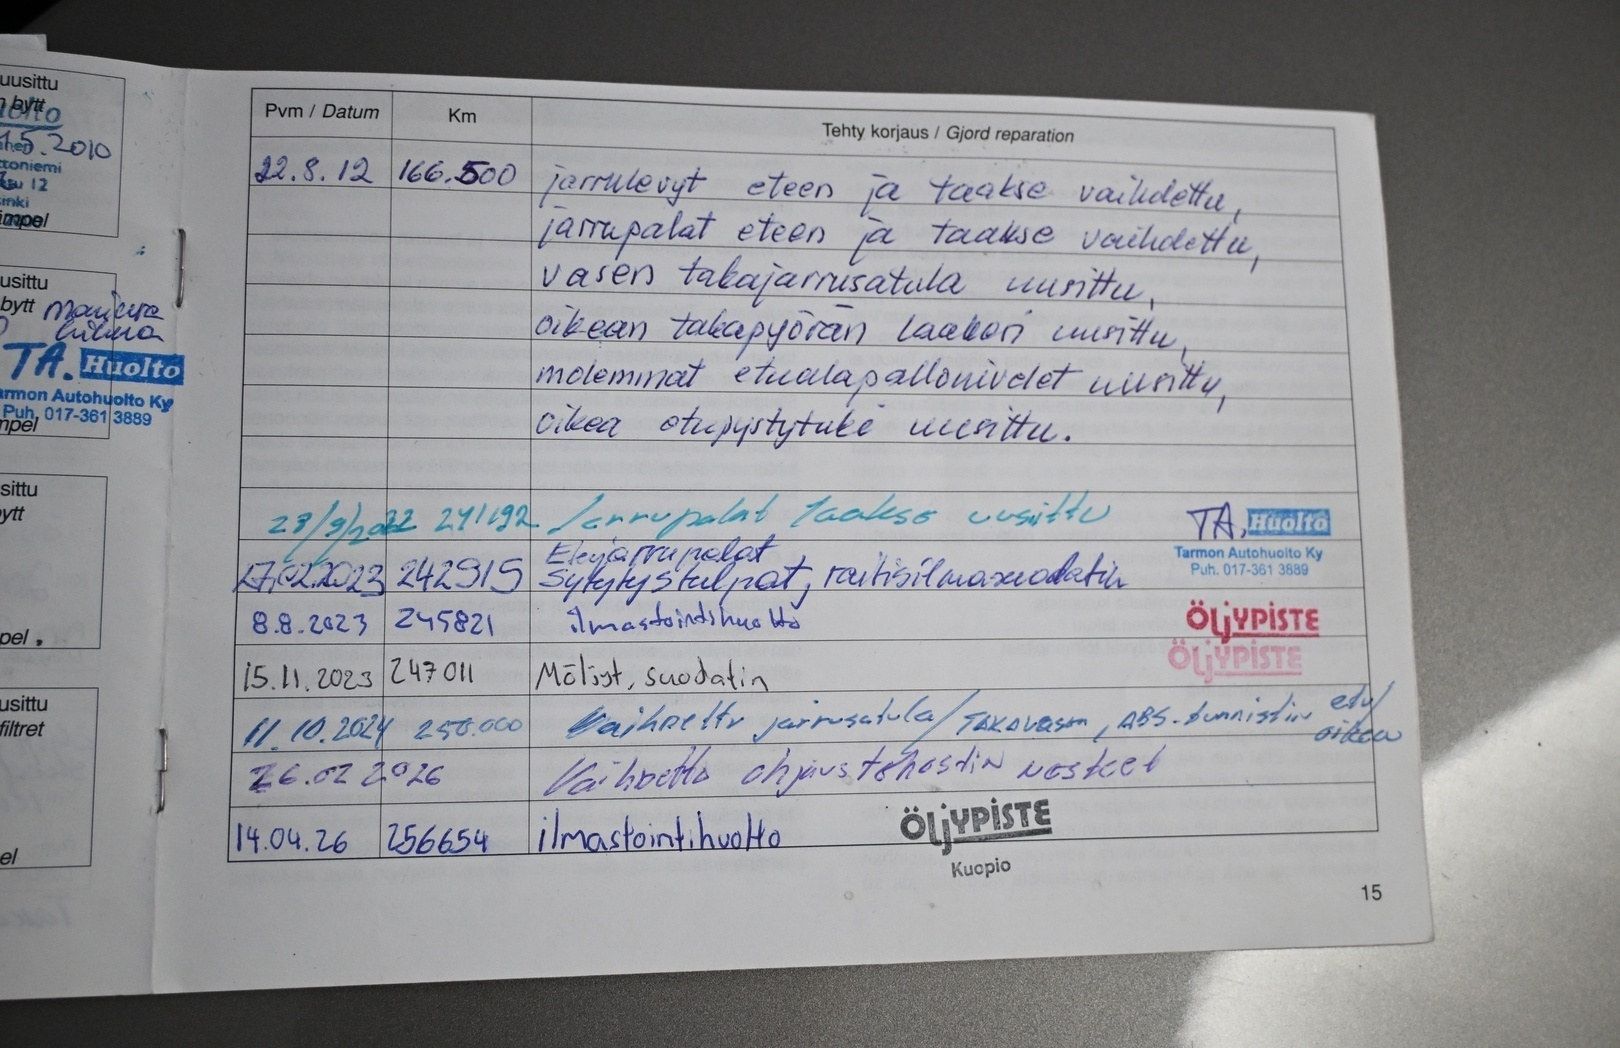 uusittu
bytt
5.2010
toniemi
12
sinki
mpel
usittu
bytt
TA. Huolto
armon Autohuolto Ky
Puh. 017-361 3889
mpel
sittu
ytt
pel
usittu
filtret
el
Pvm / Datum Km Tehty korjaus / Gjord reparation
22.8.12 166.500 jarrulevyt eteen ja taakse vaihdettu,
jarrupalat eteen ja taakse vaihdettu,
vasen takajarrusatula uusittu,
oikean takapyörän laakeri uusittu,
molemmat etualapallonivelet uusittu,
oikea etupystytuki uusittu.
23/9/2022 241192 Jarrupalat taakse uusittu TA. Huolto
Tarmon Autohuolto Ky
Puh. 017-361 3889
Etujarrupalat
17.02.2023 242915 Sytytystulpat, raitisilmasuodatin
8.8.2023 245821 ilmastointihuolto ÖLJYPISTE
ÖLJYPISTE
15.11.2023 247011 Möljyt, suodatin
11.10.2024 250.000 Vaihdettu jarrusatula/TAKAVASEN, ABS-tunnistin etu/
oikea
26.02 2026 Vaihdettu ohjaustehostin nesteet
14.04.26 256654 ilmastointihuolto ÖLJYPISTE
Kuopio
15